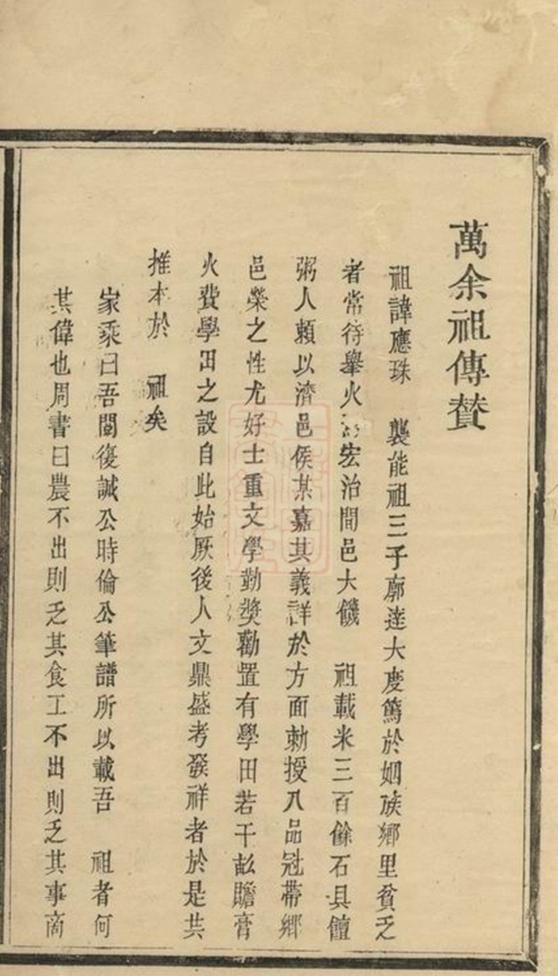 萬余祖傳贊
祖諱應珠　襲能祖三子廓達大度篤於姻族鄉里貧乏
者常待舉火　宏治間邑大饑　祖載米三百餘石具饘
粥人賴以濟邑侯某嘉其義詳於方面勅授八品冠帶鄉
邑榮之性尤好士重文學勤獎勸置有學田若干畝贍膏
火費學田之設自此始厥後人文鼎盛考發祥者於是共
推本於　祖矣
家乘曰吾閱復誠公時倫公筆譜所以載吾　祖者何
其偉也周書曰農不出則乏其食工不出則乏其事商